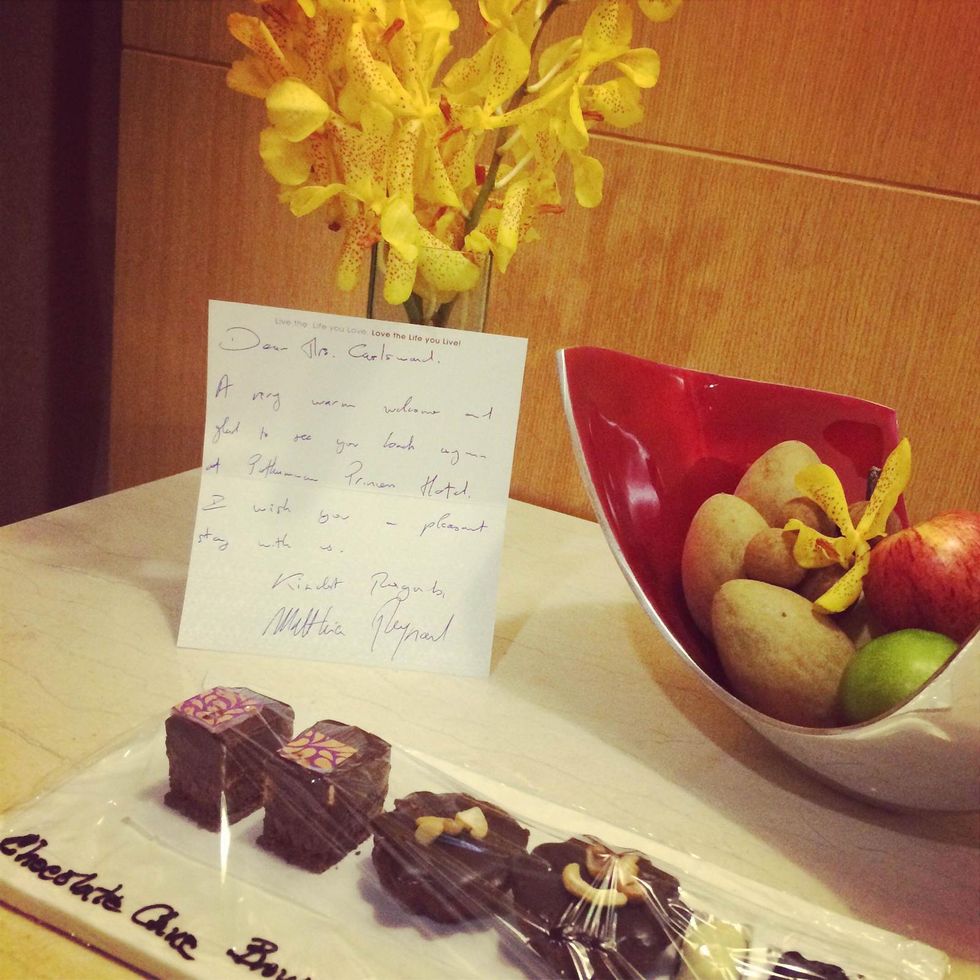 Live the Life you Love. Love the Life you Live!
Dear Mrs.
A very warm welcome and
glad to see you back again
at Princess Hotel.
I wish you a pleasant
stay with us.
Kindest Regards,
Chocolate Cake